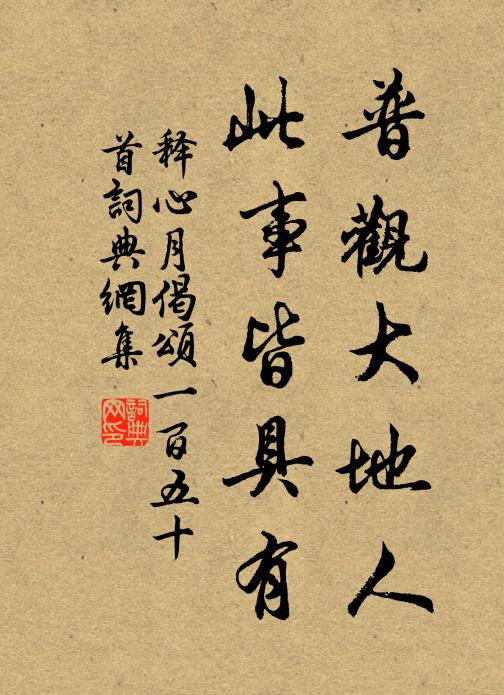 普觀大地人
此事皆具有
释心月偈頌一百五十
首詞典網集
詞典
网印